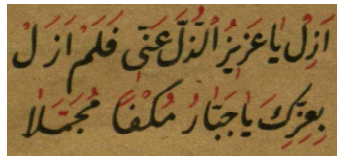 اَزِلْ يَا عَزِيزُ الذُّلَّ عَنِّى فَلَمْ اَزَلْ
بِعِزِّكَ يَا جَبَّارُ مُكْفًا مُجَمَّلَا